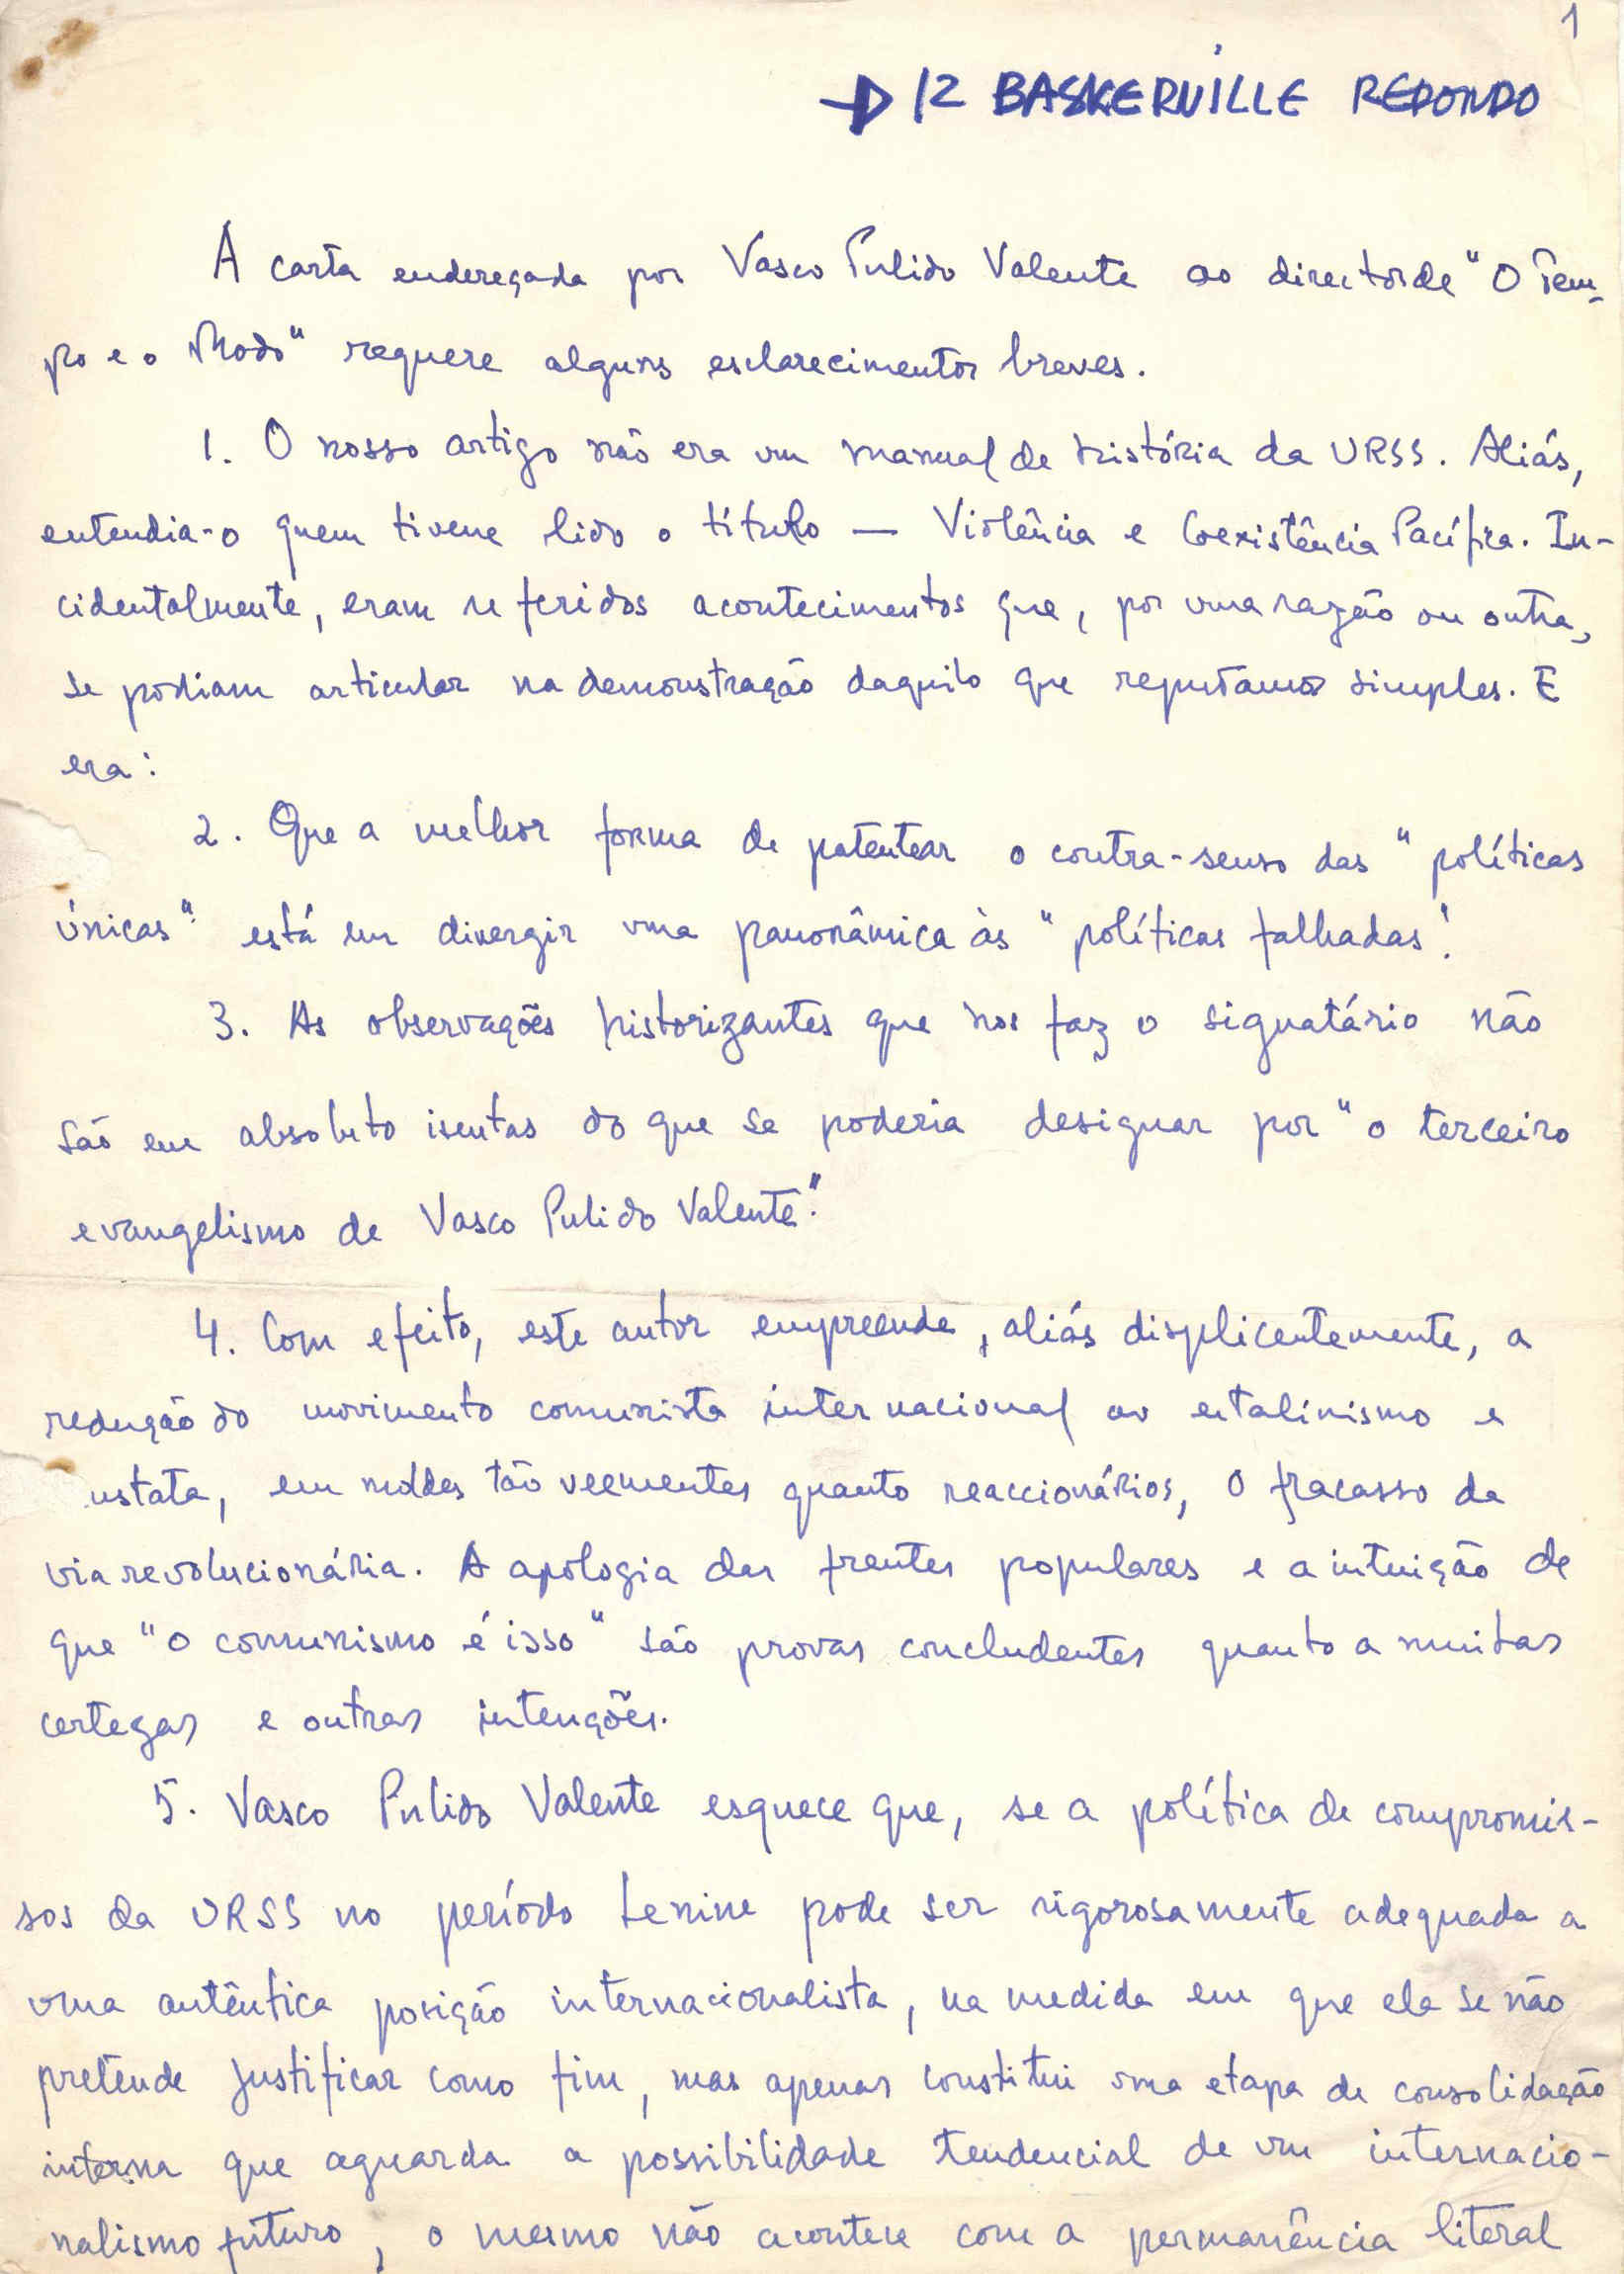 1
→ 12 BASKERVILLE REDONDO
A carta endereçada por Vasco Pulido Valente ao director de "O Tem-
po e o Modo" requere alguns esclarecimentos breves.
1. O nosso artigo não era um manual de história da URSS. Aliás,
entendia-o quem tivesse lido o título — Violência e Coexistência Pacífica. In-
cidentalmente, eram referidos acontecimentos que, por uma razão ou outra,
se podiam articular na demonstração daquilo que reputamos simples. E
era:
2. Que a melhor forma de patentear o contra-senso das "políticas
únicas" está em divergir uma panorâmica às "políticas falhadas".
3. As observações historizantes que nos faz o signatário não
são em absoluto isentas do que se poderia designar por "o terceiro
evangelismo de Vasco Pulido Valente".
4. Com efeito, este autor empreende, aliás displicentemente, a
redução do movimento comunista internacional ao estalinismo e
nstata, em moldes tão veementes quanto reaccionários, o fracasso da
via revolucionária. A apologia das frentes populares e a intuição de
que "o comunismo é isso" são provas concludentes quanto a muitas
certezas e outras intenções.
5. Vasco Pulido Valente esquece que, se a política de compromis-
sos da URSS no período Lenine pode ser rigorosamente adequada a
uma autêntica posição internacionalista, na medida em que ela se não
pretende justificar como fim, mas apenas constitui uma etapa de consolidação
interna que aguarda a possibilidade tendencial de um internacio-
nalismo futuro, o mesmo não acontece com a permanência literal